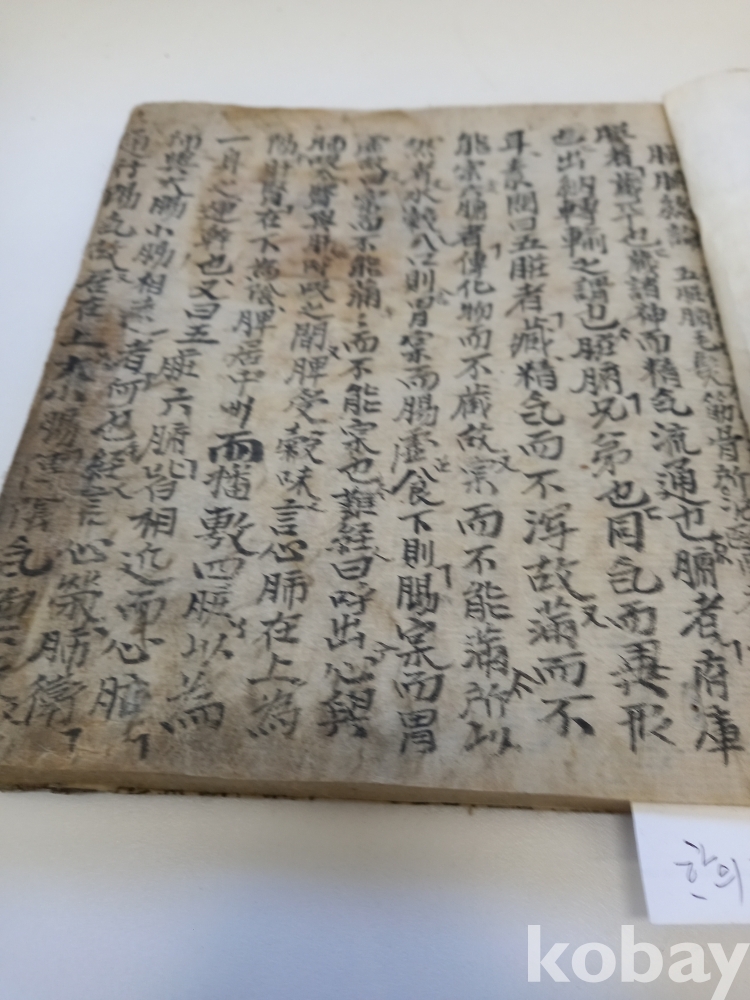 五脏腑毛髮筋骨所
脏者藏也藏諸神而精气流通也腑者府庫
也出納轉輸之謂也脏腑兄弟也同气而異形
耳素問曰五脏者藏精气而不渾故滿而不
能宲六腑者傳化物而不藏故宲而不能滿所以
然者水穀入口則胃宲而腸虛食下則腸宲而胃
虛故曰宲而不能滿〻而不能宲也難經曰呼出心與
肺吸入腎與肝呼吸之間脾受穀味言心肺在上為
陽肝腎在下為陰脾居中州而播敷四脏以為
一身之運幹也又曰五脏六腑皆相近而心肺
與大腸小腸相遠者何也經言心榮肺衛
通行陽气故居在上大小腸陰气而下
한의
kobay